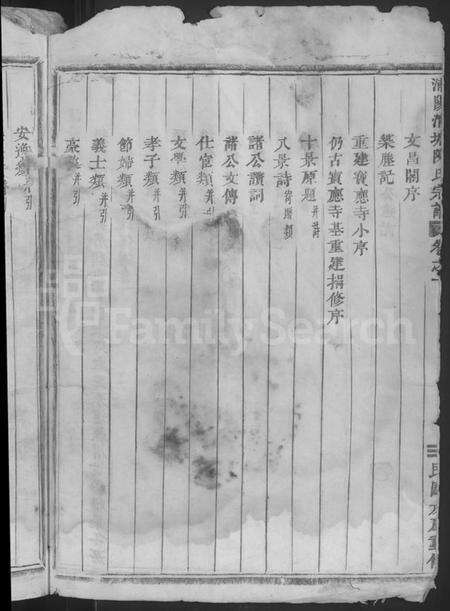 文昌閣序
築塵記
重建寶應寺小序
仍古寶應寺基重建捐修序
十景原題 并詩
八景詩
諸公讚詞
諸公文傳
仕宦類 并引
文學類 并引
孝子類 并引
節婦類 并引
義士類 并引
并引
安 類 并引
陳氏宗譜 卷之一
民國 重修
FamilySearch